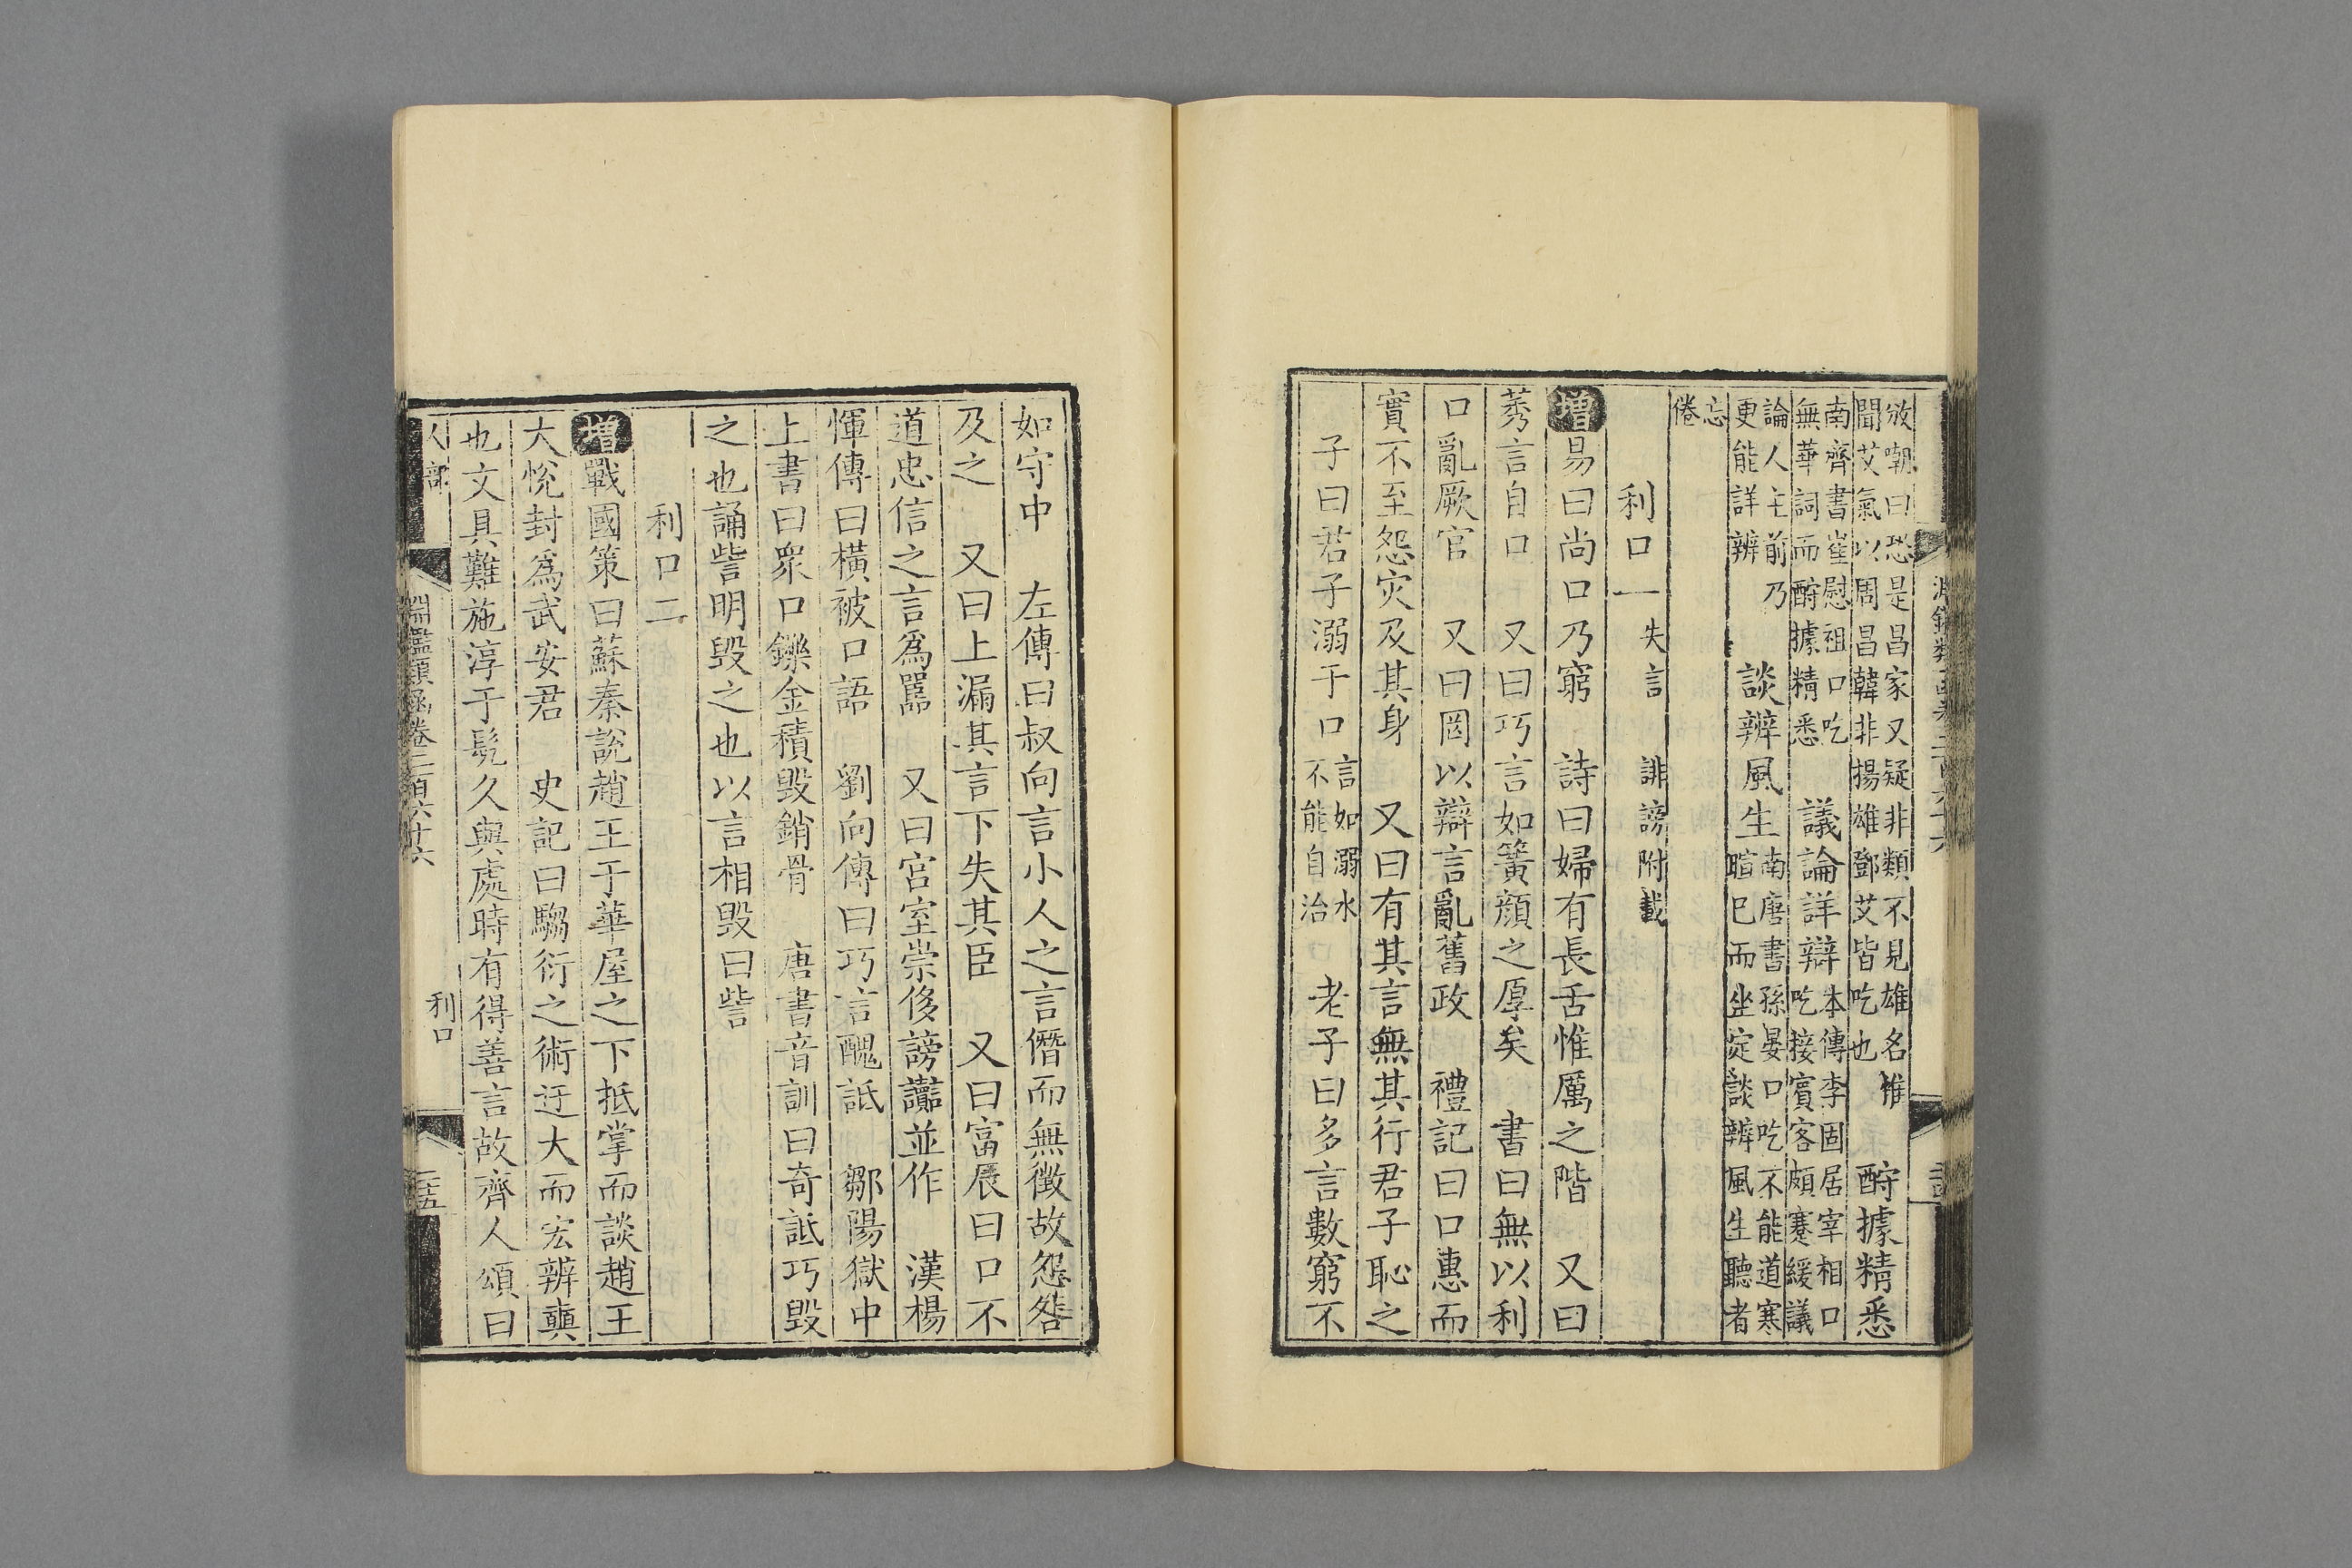 放嘲曰恐是昌家又疑非類不見雄名惟
聞艾氣以周昌韓非揚雄鄧艾皆吃也
酧據精悉
南齊書崔慰祖口吃
無華詞而酧據精悉
議論詳辯
本傳李固居宰相口
吃接賓客頗蹇緩議
論人主前乃
更能詳辨
談辨風生
南唐書孫晏口吃不能道寒
暄巳而坐定談辨風生聽者
忘
倦
利口一 失言 誹謗附載
增易曰尚口乃窮 詩曰婦有長舌惟厲之階 又曰
莠言自口 又曰巧言如簧顔之厚矣 書曰無以利
口亂厥官 又曰罔以辯言亂舊政 禮記曰口惠而
實不至怨灾及其身 又曰有其言無其行君子恥之
子曰君子溺于口
言如溺水
不能自治
老子曰多言數窮不
如守中 左傳曰叔向言小人之言僭而無徵故怨咎
及之 又曰上漏其言下失其臣 又曰富辰曰口不
道忠信之言爲嚚 又曰宮室崇侈謗讟並作 漢楊
惲傳曰橫被口語 劉向傳曰巧言醜詆 鄒陽獄中
上書曰衆口鑠金積毀銷骨 唐書音訓曰奇詆巧毀
之也誦訾明毀之也以言相毀曰訾
利口二
增戰國策曰蘇秦說趙王于華屋之下抵掌而談趙王
大悅封爲武安君 史記曰騶衍之術迂大而宏辨奭
也文具難施淳于髡久與處時有得善言故齊人頌曰
人部 淵鑑類函卷二百六十六 利口 二十五